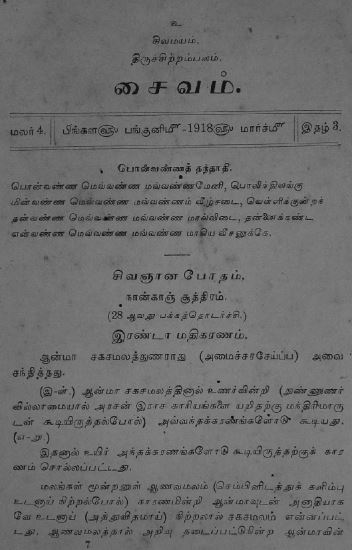 உ
சிவமயம்.
திருச்சிற்றம்பலம்.
சைவம்.
மலர் 4. பிங்கள௵ பங்குனிமீ -1918௵ மார்ச்மீ இதழ் 3.
பொன்வண்ணத் தந்தாதி.
பொன்வண்ண மெவ்வண்ண மவ்வண்ணமேனி, பொலிந்திலங்கு
மின்வண்ண மெவ்வண்ண மவ்வண்ணம் வீழ்சடை, வெள்ளிக்குன்றச்
தன்வண்ண மெவ்வண்ண மவ்வண்ண மால்விடை, தன்னைக்கண்ட
என்வண்ண மெவ்வண்ண மவ்வண்ண மாகிய வீசனுக்கே.
சிவஞான போதம்,
நான்காஞ் சூத்திரம்.
(28 ஆவது பக்கத்தொடர்ச்சி.)
இரண்டா மதிகரணம்,
ஆன்மா சகசமலத்துணராது (அமைச்சரசேய்ப்ப) அவை
சந்தித்தது.
(இ-ள்.) ஆன்மா சகசமலத்தினால் உணர்வின்றி (நுண்ணுணர்
வில்லாமையால் அரசன் இராச காரியங்களை யறிதற்கு மந்திரிமாரு
டன் கூடியிருத்தல்போல்) அவ்வந்தக்கரணங்களோடு கூடியது.
(எ-று.)
இதனால் உயிர் அந்தக்கரணங்களோடு கூடியிருத்தற்குக் கார
ணம் சொல்லப்பட்டது.
மலங்கள் மூன்றனுள் ஆணவமலம் (செம்பினிடத்துக் களிம்பு
உடனாய் நிற்றல்போல்) காரணமின்றி ஆன்மாவுடன் அனாதியாக
வே உடனாய் (அத்துவிதமாய்) நிற்றலால் சகசமலம் என்னப்பட்
டது. ஆணவமலத்தால் அறிவு தடைப்பட்டுகின்ற ஆன்மாவின்
7